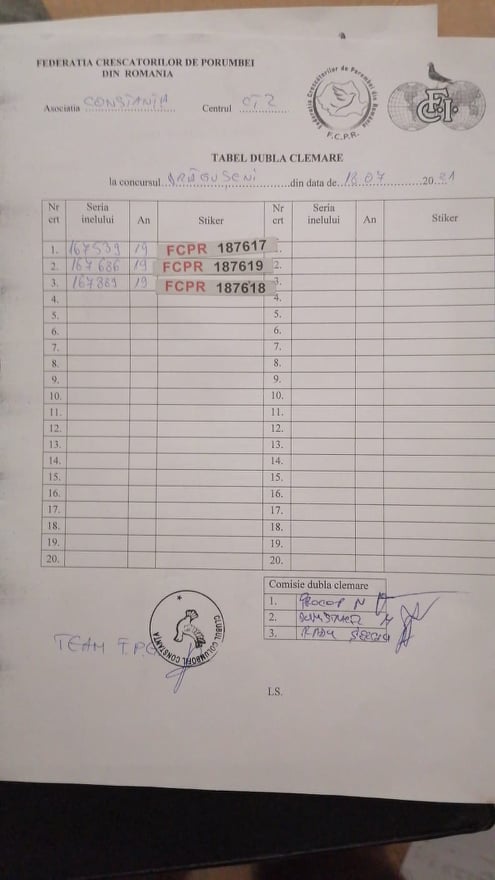 FEDERATIA CRESCATORILOR DE PORUMBEI
DIN ROMANIA
Asociatia CONSTANTA Centrul CT 2
Federatia Crescatorilor de Porumbei din Romania
F.C.P.R.
FCI
TABEL DUBLA CLEMARE
la concursul DRĂGUSENI din data de 18.07 2021
Nr crt Seria inelului An Stiker Nr crt Seria inelului An Stiker
1. 167539 19 FCPR 187617 1.
2. 167686 19 FCPR 187619 2.
3. 167889 19 FCPR 187618 3.
4. 4.
5. 5.
6. 6.
7. 7.
8. 8.
9. 9.
10. 10.
11. 11.
12. 12.
13. 13.
14. 14.
15. 15.
16. 16.
17. 17.
18. 18.
19. 19.
20. 20.
Comisie dubla clemare
1. PROCOP N
2.
3. RADU
TEAM
CLUBUL COLUMBOFIL CONSTANTA
LS.